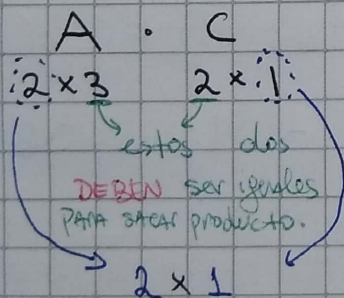 A . C
2 x 3 2 x 1
estos dos
DEBEN ser iguales
PARA SACAR producto.
2 x 1